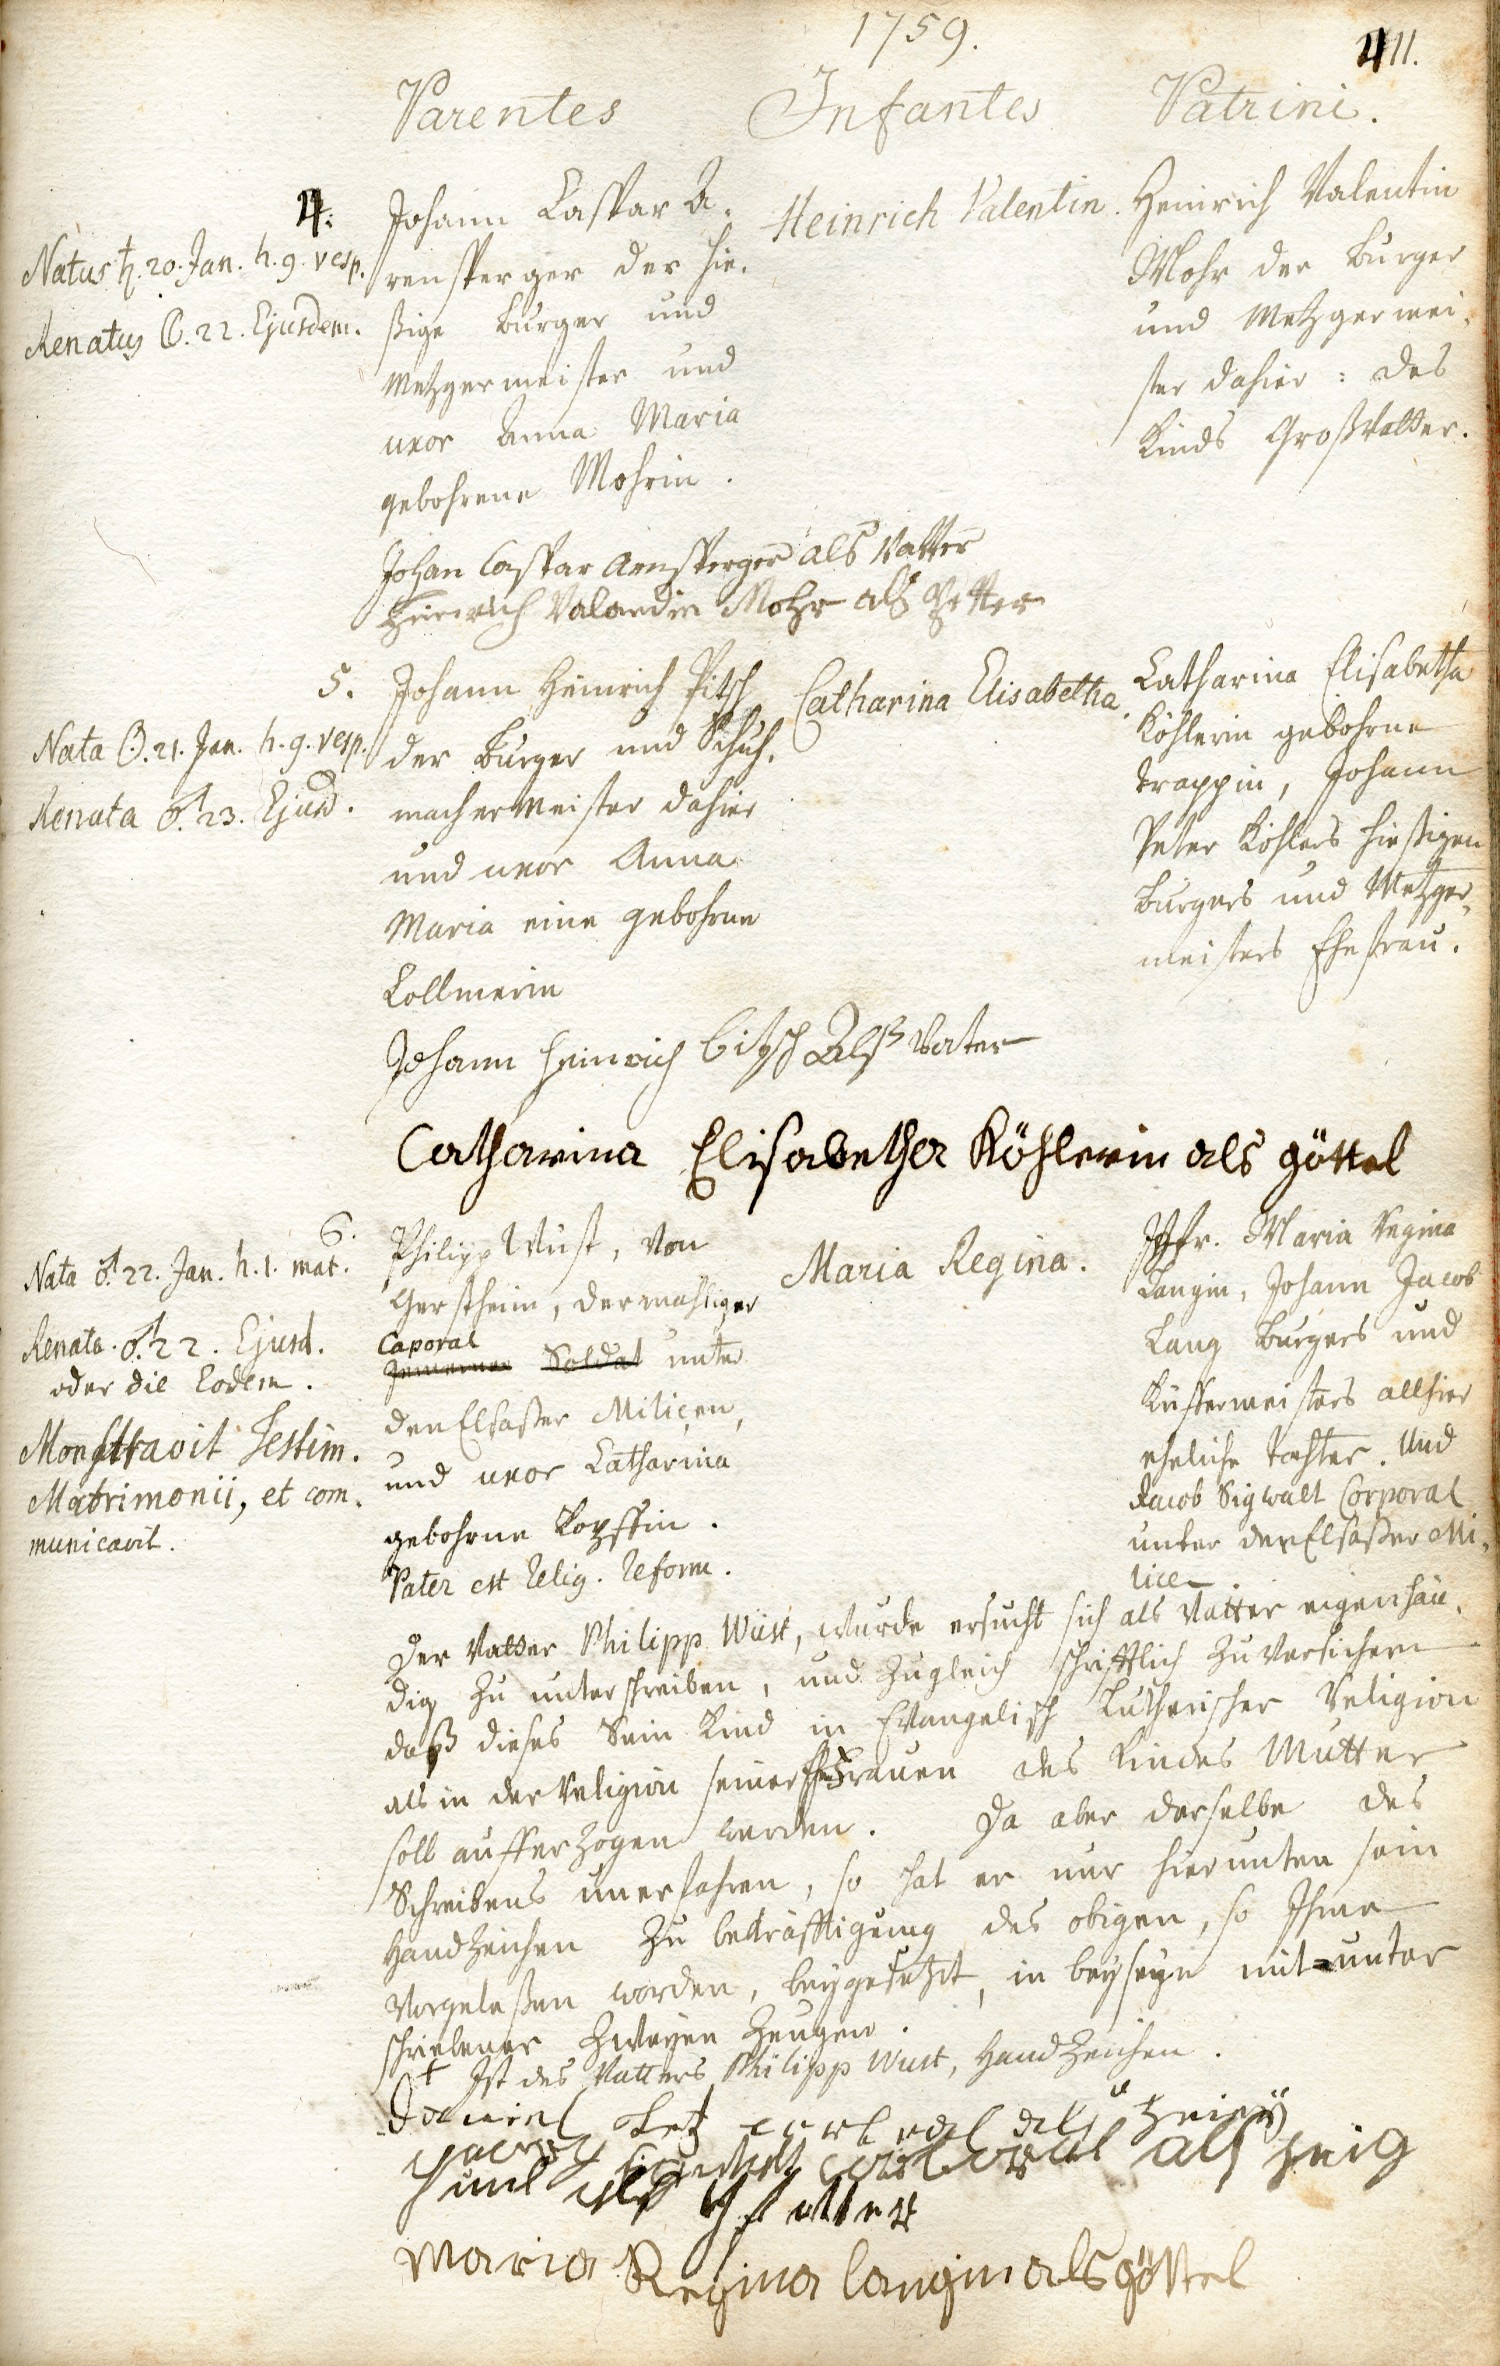 1759.
411.
Parentes Infantes Patrini.
4.
Natus ♄. 20. Jan. h. 9. vesp.
Renatus ☾. 22. Ejusdem.
Johann Caspar A-
rensperger der hie-
ßige Burger und
Metzgermeister und
uxor Anna Maria
gebohrene Mohrin.
Heinrich Valentin.
Heinrich Valentin
Mohr der Burger
und Metzgermei-
ster dahier: des
Kinds Großvatter.
Johan Caspar Arnsperger als Vatter
Heinrich Valendin Mohr als Petter
5.
Nata ☉. 21. Jan. h. 9. vesp.
Renata ♂. 23. Ejusd.
Johann Heinrich Pitsch
der Burger und Schuh-
machermeister dahier
und uxor Anna
Maria eine gebohrne
Collmerin
Catharina Elisabetha.
Catharina Elisabetha
Köhlerin gebohrne
Trappin, Johann
Peter Köhlers hießigen
Burgers und Metzger-
meisters Ehefrau.
Johann Heinrich bitsch Alß Vater
Catharina Elisabetha Köhlerin als göttel
6.
Nata ♂. 22. Jan. h. 1. mat.
Renata. ♂. 22. Ejusd.
oder die Eodem.
Monstravit Testim.
Matrimonii, et com-
municavit.
Philipp Wüst, von
Gerstheim, dermahliger
Caporal
Gemeiner Soldat unter
den Elsaßer Miliçen,
und uxor Catharina
gebohrne Kopffin.
Pater est Relig. Reform.
Maria Regina.
Jgfr. Maria Regina
Langin, Johann Jacob
Lang Burgers und
Küffermeisters allhier
eheliche Tochter. Und
Jacob Sigwalt Corporal
unter den Elsaßer Mi-
licen.
Der Vatter Philipp Wüst, wurde ersucht sich als Vatter eigenhän-
dig zu unterschreiben, und zugleich schrifftlich zu versichern
daß dieses Sein Kind in Evangelisch Lutherischer Religion
als in der Religion seiner EheFrauen des Kindes Mutter
soll aufferzogen werden. Da aber derselbe des
Schreibens unerfahren, so hat er nur hierunten sein
Handzeichen zu bekräfftigung des obigen, so Ihme
vorgeleßen worden, beygesetzt, in beyseyn mit unter
schriebener zweyen Zeugen.
† Ist des Vatters Philipp Wüst, Handzeichen.
Daniel als zeig
als zeig
und als
Maria Regina langin als göttel